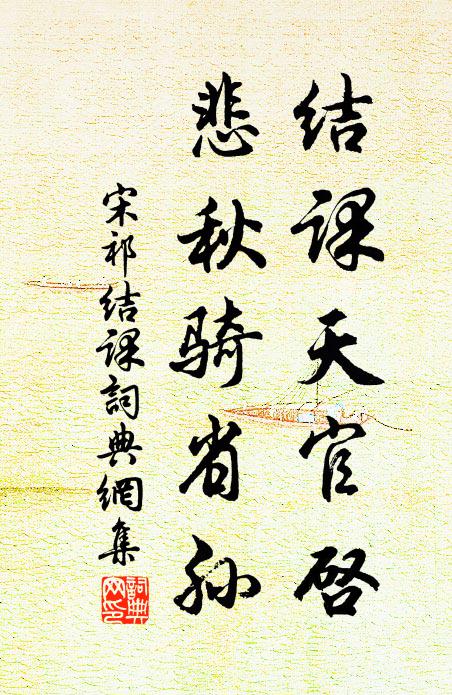 结课天官启
悲秋骑省孙
宋祁结课詞典網集
詞典网印